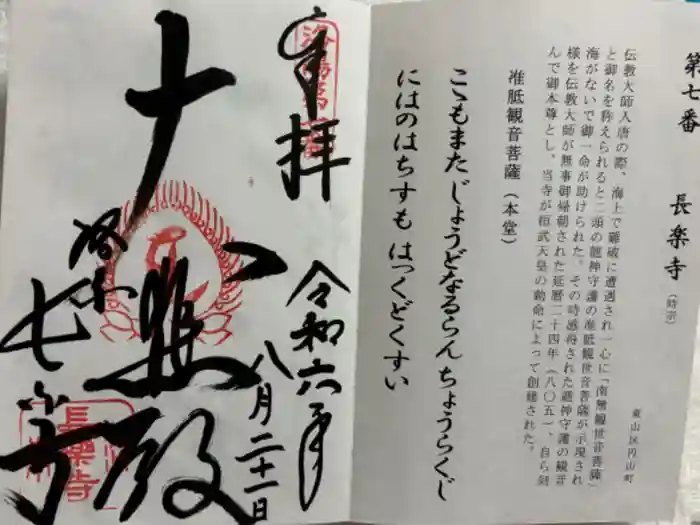 第七番 長楽寺（時宗）
東山区円山町
伝教大師入唐の際、海上で難破に遭遇され一心に「南無観世音菩薩」
と御名を称えられると二頭の龍神守護の准胝観世音菩薩が示現され
海がないで御一命が助けられた。その時感得された龍神守護の観音
様を伝教大師が無事御帰朝された延暦二十四年（八〇五）、自ら刻
んで御本尊とし、当寺が桓武天皇の勅命によって創建された。
准胝観音菩薩（本堂）
こゝもまた じょうどなるらん ちょうらくじ
にはのはちすも はっくどくすい
奉拝
令和六年
八月二十一日
大悲殿
洛陽
七番
長楽寺